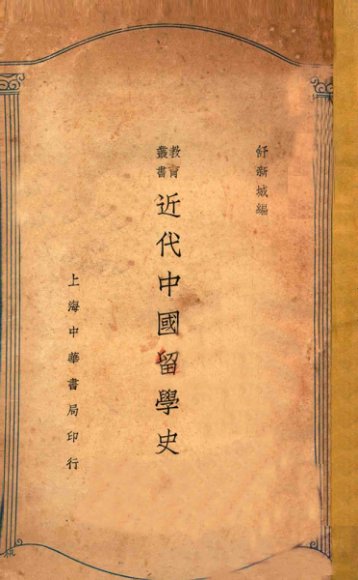 舒新城編
教育
叢書
近代中國留學史
上海中華書局印行